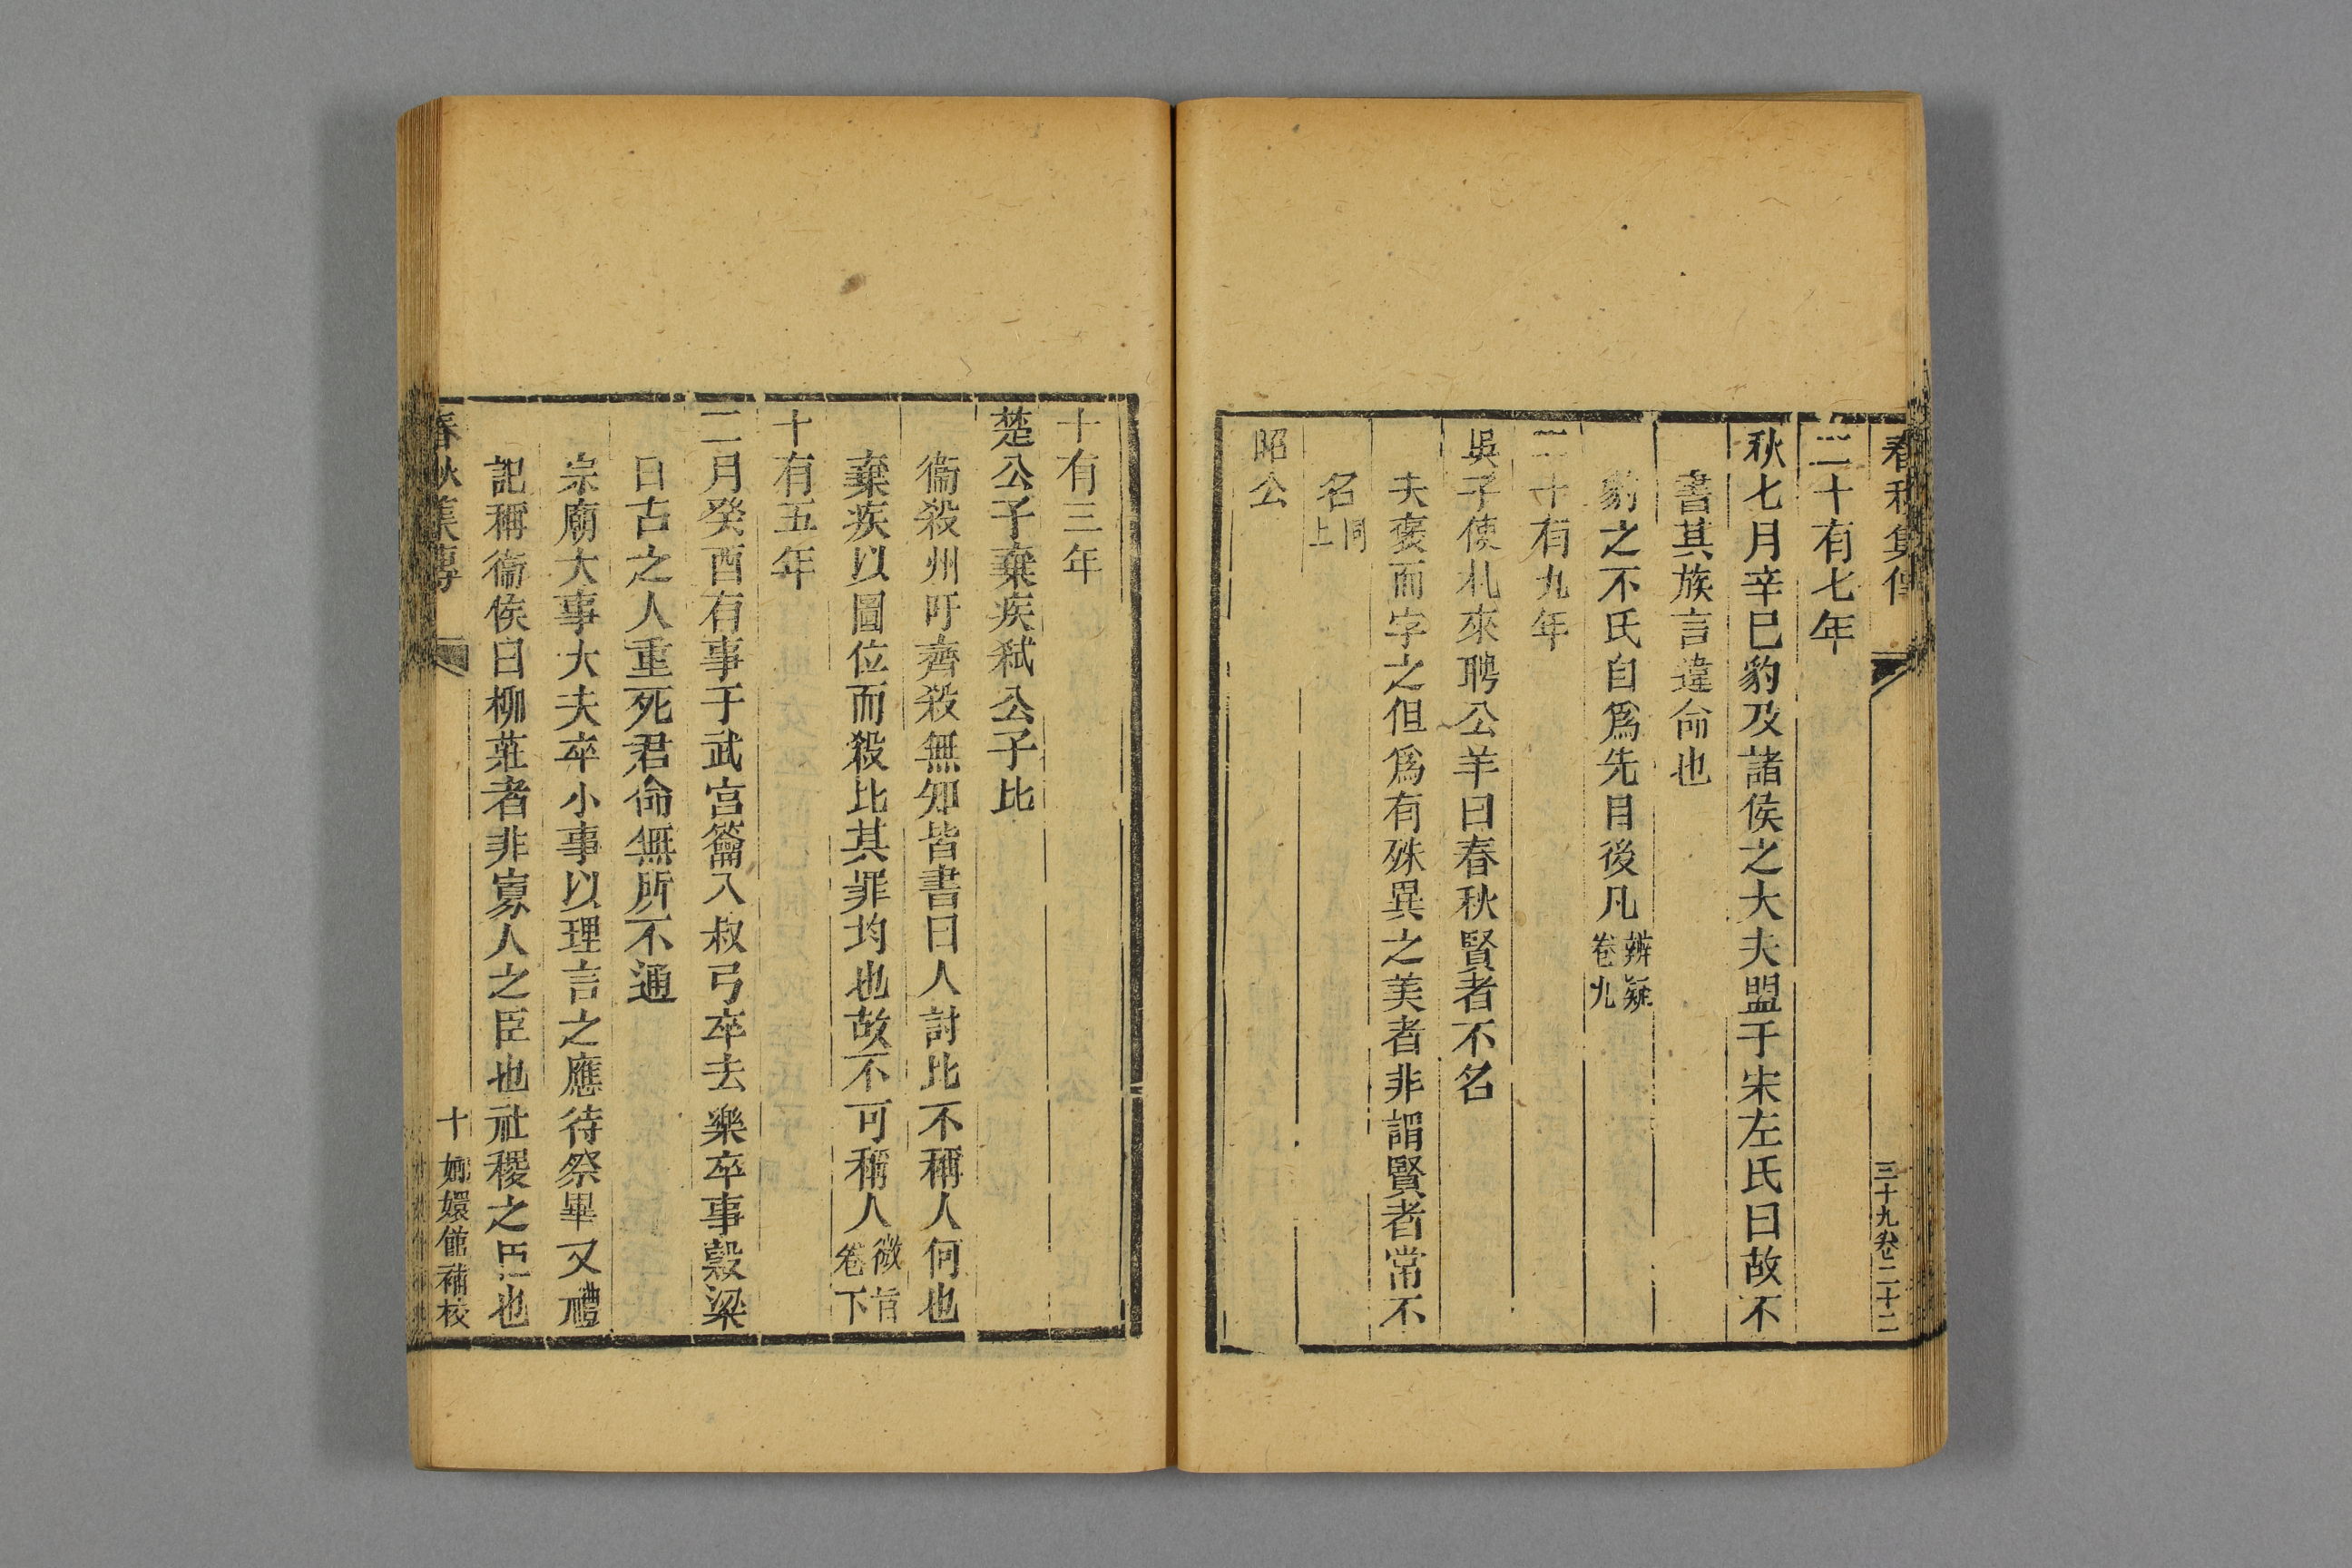 春秋集傳
三十九卷二十二
二十有七年
秋七月辛巳豹及諸侯之大夫盟于宋左氏曰故不
書其族言違命也
豹之不氏自爲先目後凡辨疑卷九
二十有九年
吳子使札來聘公羊曰春秋賢者不名
夫褒而字之但爲有殊異之美者非謂賢者常不
名同上
昭公
十有三年
楚公子棄疾弒公子比
衞殺州吁齊殺無知皆書曰人討比不稱人何也
棄疾以圖位而殺比其罪均也故不可稱人微旨卷下
十有五年
二月癸酉有事于武宮籥入叔弓卒去樂卒事穀梁
曰古之人重死君命無所不通
宗廟大事大夫卒小事以理言之應待祭畢又禮
記稱衞侯曰柳莊者非寡人之臣也社稷之臣也
春秋集傳
十
嫏嬛館補校